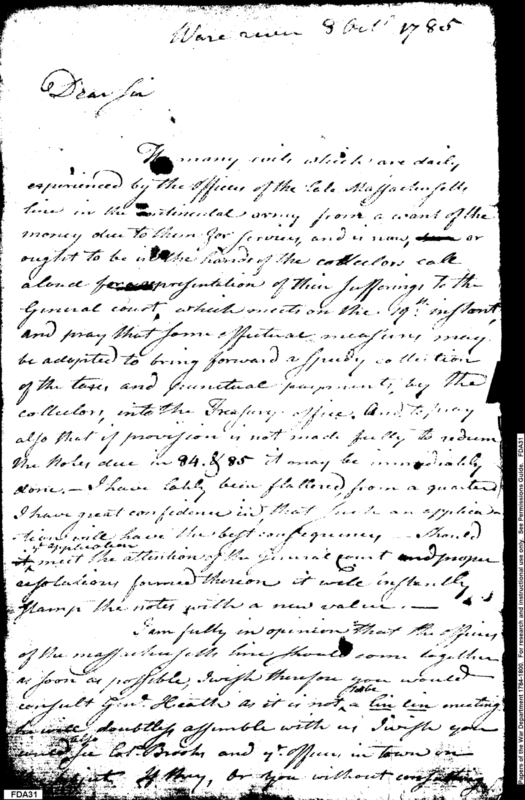 Ware river 8 Octr 1785
Dear Sir
The many evils which are daily
experienced by the officers of the late Massachusetts
line in the continental army from a want of the
money due to them for services, and is now, or
ought to be in the hands of the collectors call
aloud for a representation of their sufferings to the
General court, which meets on the 19th instant,
and pray that some effectual measures may
be adopted to bring forward a speedy collection
of the taxes and punctual payments, by the
collectors, into the Treasury office. And to pray
also that if provision is not made fully to redeem
the Notes due in 84 & 85 it may be immediately
done. — I have lately been flattered, from a quarter
I have great confidence in, that such an applica
tion will have the best consequences — Should
ye application
meet the attention of the General court and proper
resolutions formed thereon it will instantly
stamp the notes with a new value. —
I am fully in opinion that the officers
of the massachusetts line should come together
as soon as possible, I wish therefore you would
consult Genl. Heath as it is not to be a lin lin meeting
he will doubtless assemble with us I wish you
also
would see Col. Brooks and ye. officers in town on
If they, or you without consulting
FDA31
Papers of the War Department 1784-1800. For research and instructional use only. See Permissions Guide. FDA31